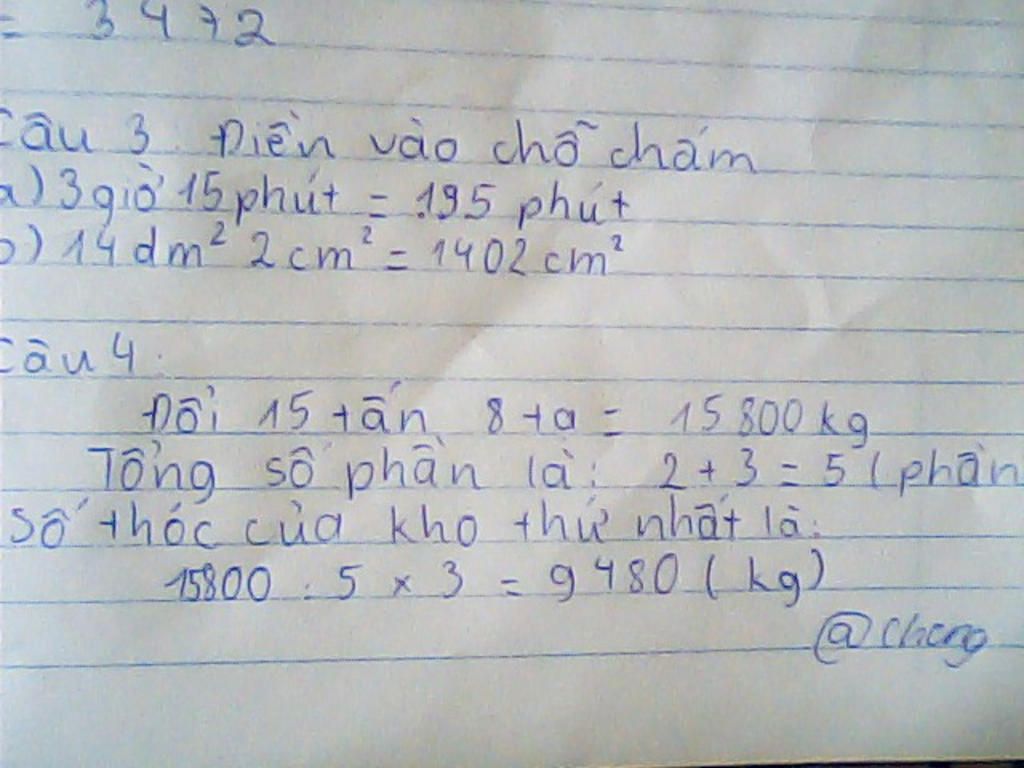 = 3472
Câu 3. Điền vào chỗ chấm
a) 3 giờ 15 phút = 195 phút
b) 14 dm² 2 cm² = 1402 cm²
Câu 4.
Đổi 15 tấn 8 tạ = 15 800 kg
Tổng số phần là: 2 + 3 = 5 ( phần
Số thóc của kho thứ nhất là:
15800 : 5 x 3 = 9 480 ( kg)